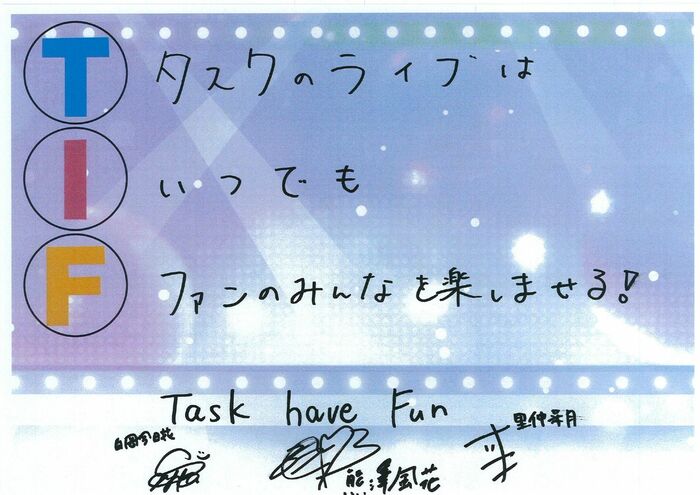 T タスクのライブは
I いつでも
F ファンのみんなを楽しませる!
Task have Fun
里仲菜月
白岡今日花
熊澤風花